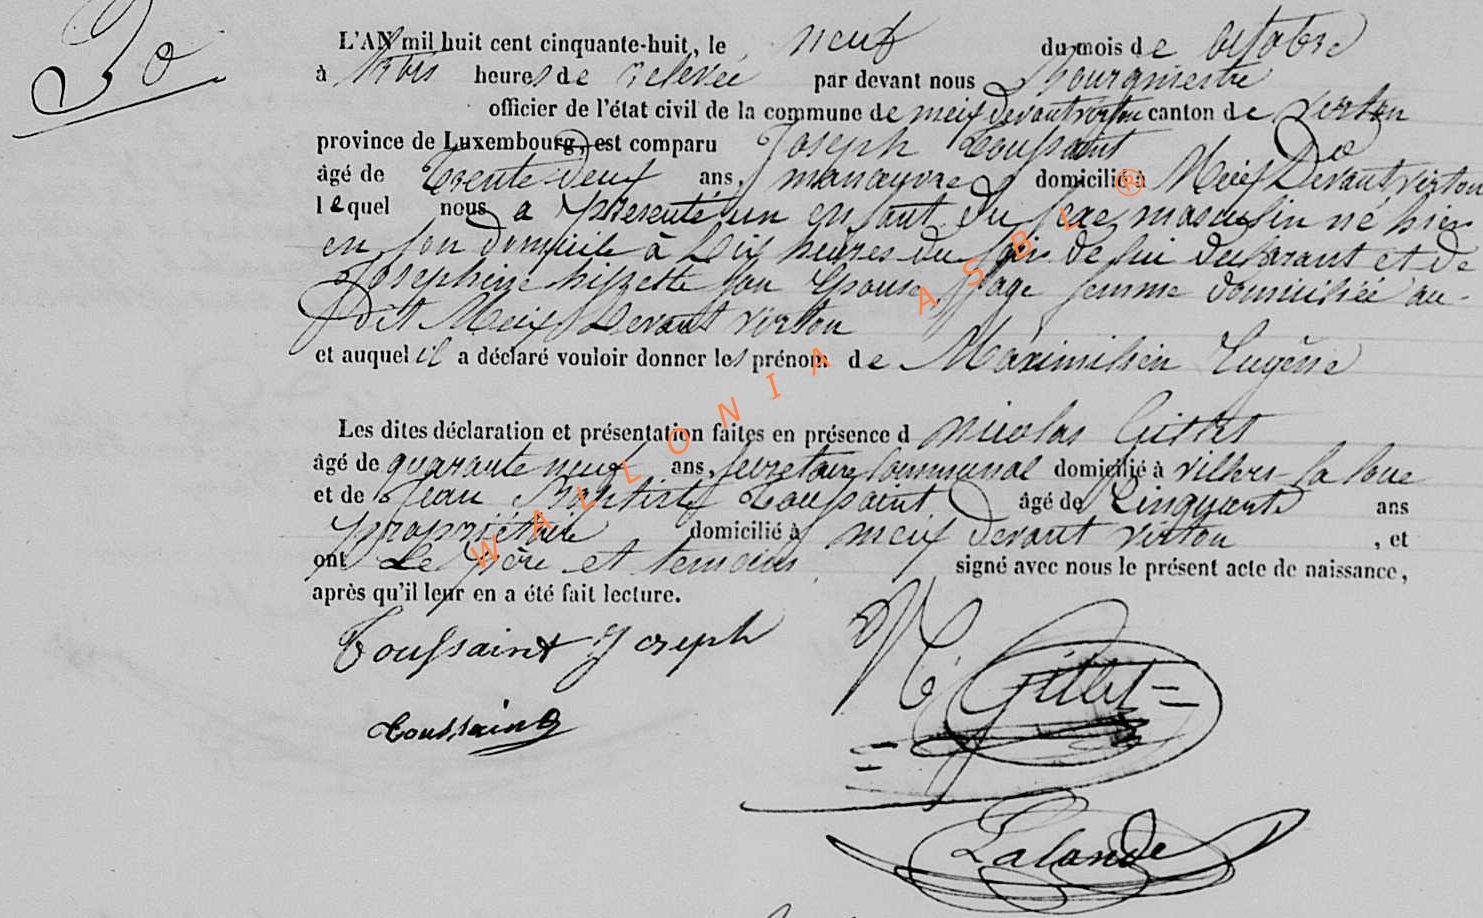 20
L'AN mil huit cent cinquante-huit, le neuf du mois de octobre
à trois heures de relevée par devant nous Bourgmestre
officier de l'état civil de la commune de meix devant virton canton de virton
province de Luxembourg, est comparu Joseph Toussaint
âgé de Trente deux ans, manœuvre domicilié à Meix Devant virton
lequel nous a présenté un enfant du sexe masculin né hier
en son domicile à Dix heures du soir de lui déclarant et de
Joséphine son Epouse, sage femme domiciliée au-
dit Meix Devant virton
et auquel il a déclaré vouloir donner les prénom de Maximilien Eugène
Les dites déclaration et présentation faites en présence d Nicolas Gillet
âgé de quarante neuf ans, secretaire Communal domicilié à villers la loue
et de Jean Baptiste Toussaint âgé de Cinquante ans
propriétaire domicilié à meix devant virton , et
ont Le père et temoins signé avec nous le présent acte de naissance,
après qu'il leur en a été fait lecture.
Toussaint Joseph
N. Gillet
Toussaint
Lalande
WALLONIA ASBL ®